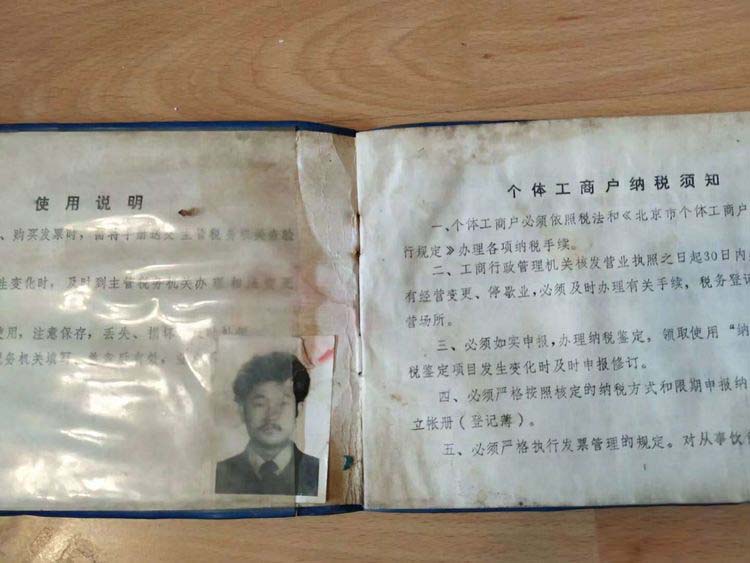 使用说明
、购买发票时,需将手册送交主管税务机关查验
生变化时,及时到主管税务机关办理
使用,注意保存,丢失、损坏
税务机关填写
个体工商户纳税须知
一、个体工商户必须依照税法和《北京市个体工商户
行规定》办理各项纳税手续。
二、工商行政管理机关核发营业执照之日起30日内
有经营变更、停歇业,必须及时办理有关手续,税务登记
营场所。
三、必须如实申报,办理纳税鉴定,领取使用“纳
税鉴定项目发生变化时及时申报修订。
四、必须严格按照核定的纳税方式和限期申报纳
立帐册(登记簿)。
五、必须严格执行发票管理的规定。对从事饮食